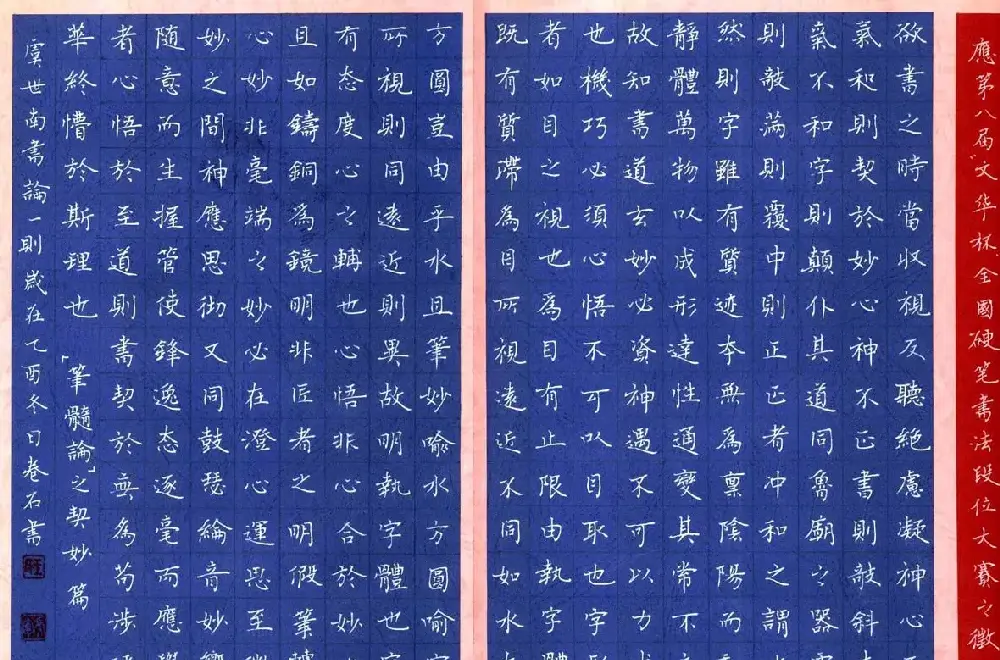 應第八届"文华杯"全國硬笔書法段位大賽之徵
欲書之時當收視反聽絕慮凝神心
氣和則契於妙心神不正書則敧斜
氣不和字則顛仆其道同魯廟之器
則敧滿則覆中則正正者冲和之謂
然則字雖有質迹本無為稟陰陽而
靜體萬物以成形達性通變其常不
故知書道玄妙必資神遇不可以力
也機巧必須心悟不可以目取也字
者如目之視也為目有止限由執字
既有質滯為目所視遠近不同如水
方圓豈由乎水且筆妙喻水方圓喻
所視則同遠近則異故明執字體也
有态度心之輔也心悟非心合於妙
且如鑄銅為鏡明非匠者之明假筆
心妙非毫端之妙必在澄心運思至
妙之間神應思彻又同鼓瑟綸音妙
随意而生握管使鋒逸态逐毫而應
者心悟於至道則書契於無為苟涉
華終懵於斯理也「筆髓論」之契妙篇
虞世南書論一則歲在乙酉冬日卷石書